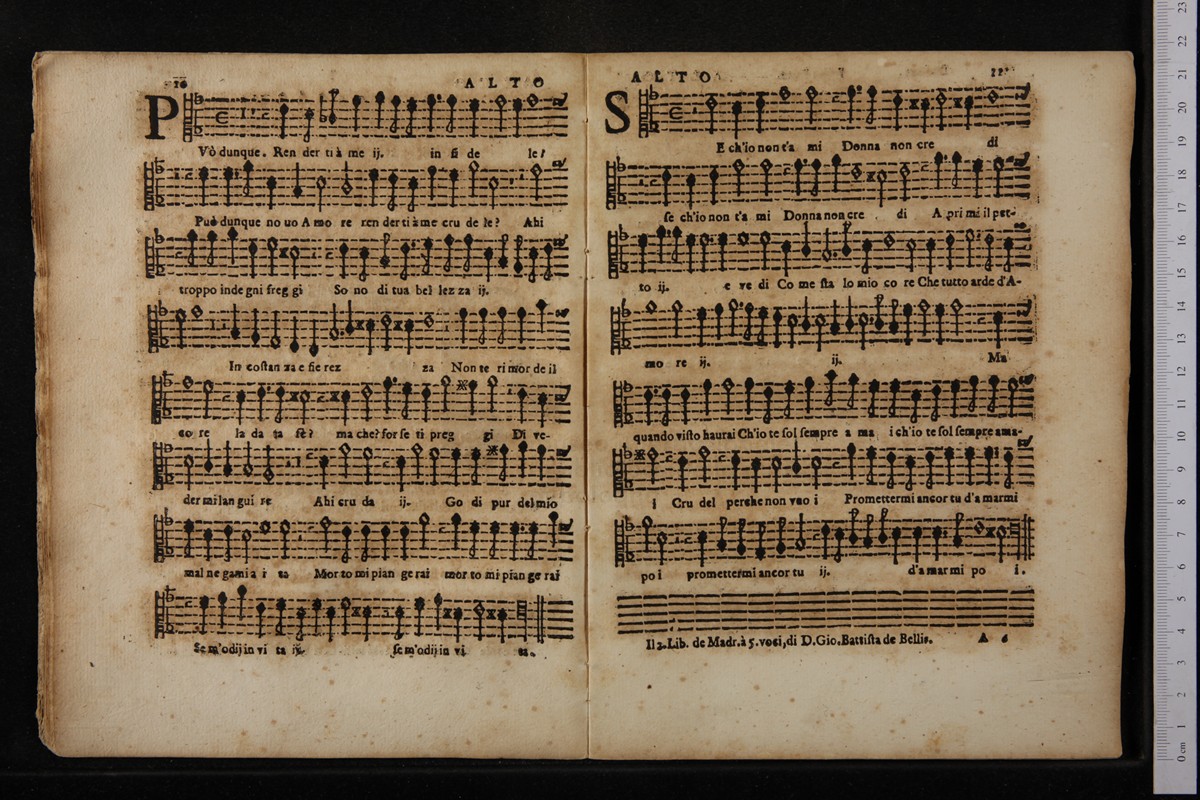 10
ALTO
P
Vò dunque. Ren der ti à me ij. in fi de le?
Può dunque no uo A mo re ren der ti à me cru de le? Ahi
troppo inde gni freg gi So no di tua bel lez za ij.
In coſtan za e fie rez za Non te ri mor de il
co re la da ta fè? ma che? for ſe ti preg gi Di ve-
der mi lan gui re Ahi cru da ij. Go di pur del mio
mal ne ga mi a i ta Mor to mi pian ge rai mor to mi pian ge rai
Se m'odij in vi ta ij. ſe m'odij in vi ta.
ALTO
11
S
E ch'io non t'a mi Donna non cre di
ſe ch'io non t'a mi Donna non cre di A pri mi il pet-
to ij. e ve di Co me ſta lo mio co re Che tutto arde d'A-
mo re ij. ij. Ma
quando viſto haurai Ch'io te ſol ſempre a ma i ch'io te ſol ſempre ama-
i Cru del perche non vuo i Promettermi ancor tu d'a marmi
po i promettermi ancor tu ij. d'a mar mi po i.
Il 2. Lib. de Madr. à 5. voci, di D. Gio. Battiſta de Bellis. A 6
0 cm 1 2 3 4 5 6 7 8 9 10 11 12 13 14 15 16 17 18 19 20 21 22 23